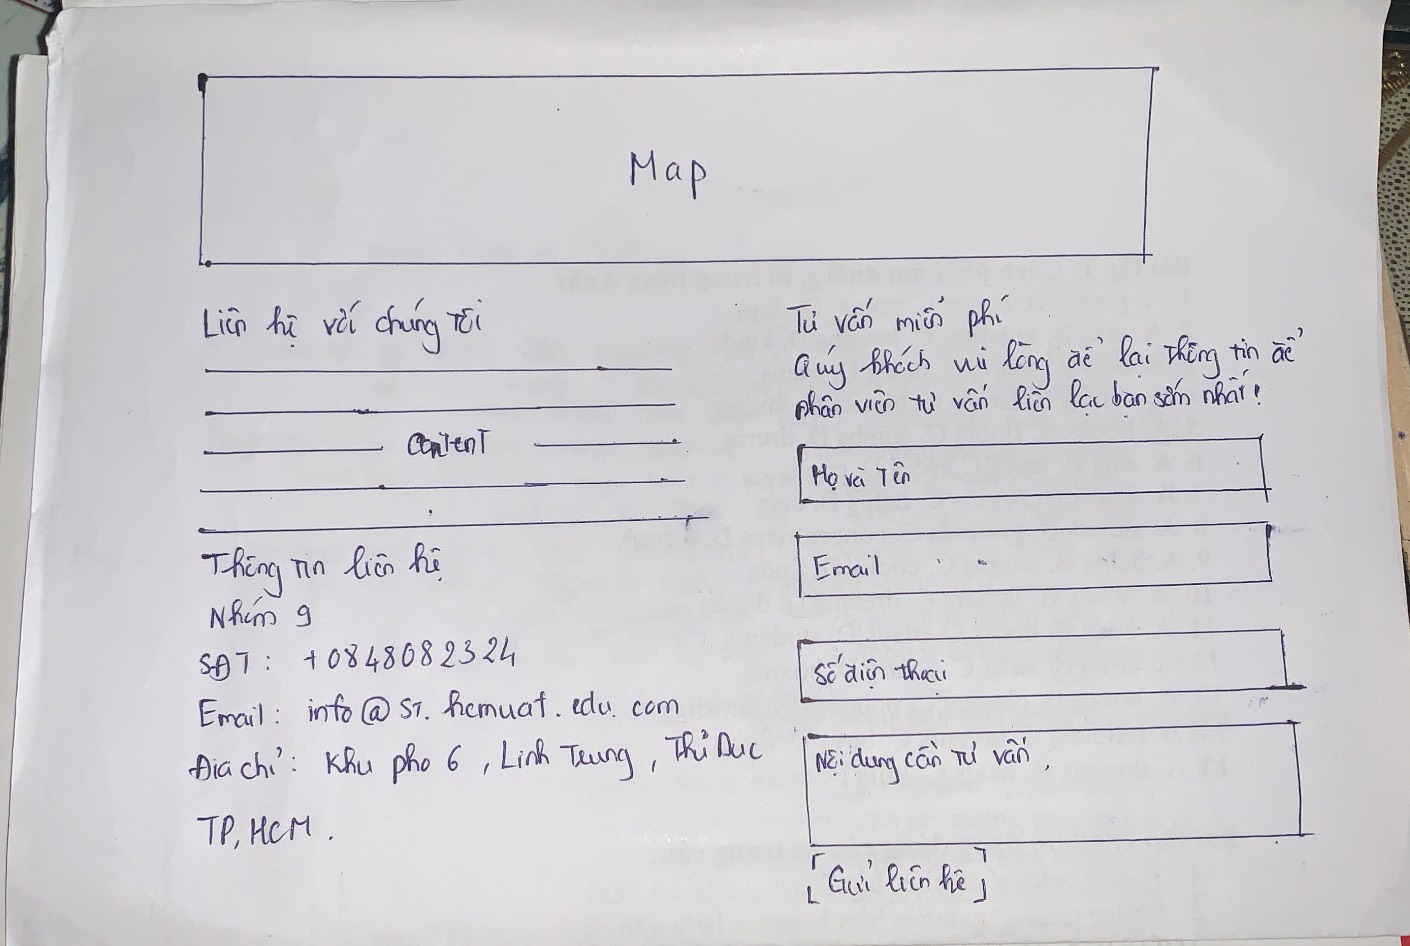 Map
Liên hệ với chúng tôi
Content
Thông tin liên hệ
Nhóm 9
SĐT: +0848082324
Email: info@st.hcmuaf.edu.com
Địa chỉ: Khu pho 6, Linh Trung, Thủ Duc
TP, HCM.
Tư vấn miễn phí
Quý khách vui lòng để lại thông tin để
nhân viên tư vấn liên lạc bạn sớm nhất!
Họ và Tên
Email
Số điện thoại
Nội dung cần tư vấn.
[Gửi liên hệ]